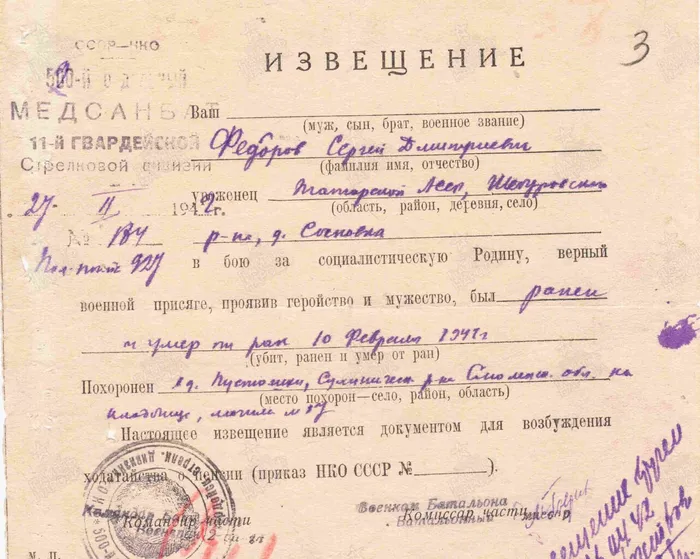 СССР—НКО
ИЗВЕЩЕНИЕ
3
МЕДСАНБАТ
11-й ГВАРДЕЙСКОЙ
Стрелковой дивизии
Ваш
(муж, сын, брат, военное звание)
Федоров Сергей Дмитриевич
(фамилия имя, отчество)
уроженец Татарской АССР,
(область, район, деревня, село)
27. II 1942г.
№ 184 р-на, д. Сосновка
927 в бою за социалистическую Родину, верный
военной присяге, проявив геройство и мужество, был ранен
и умер от ран 10 февраля 1942г
(убит, ранен и умер от ран)
Похоронен в д. Сухинич р-на Смоленс. обл. на
(место похорон—село, район, область)
кладбище, могила №
Настоящее извещение является документом для возбуждения
ходатайства о пенсии (приказ НКО СССР № ).
Военком Батальона
Командир части
Комиссар части
М. П.